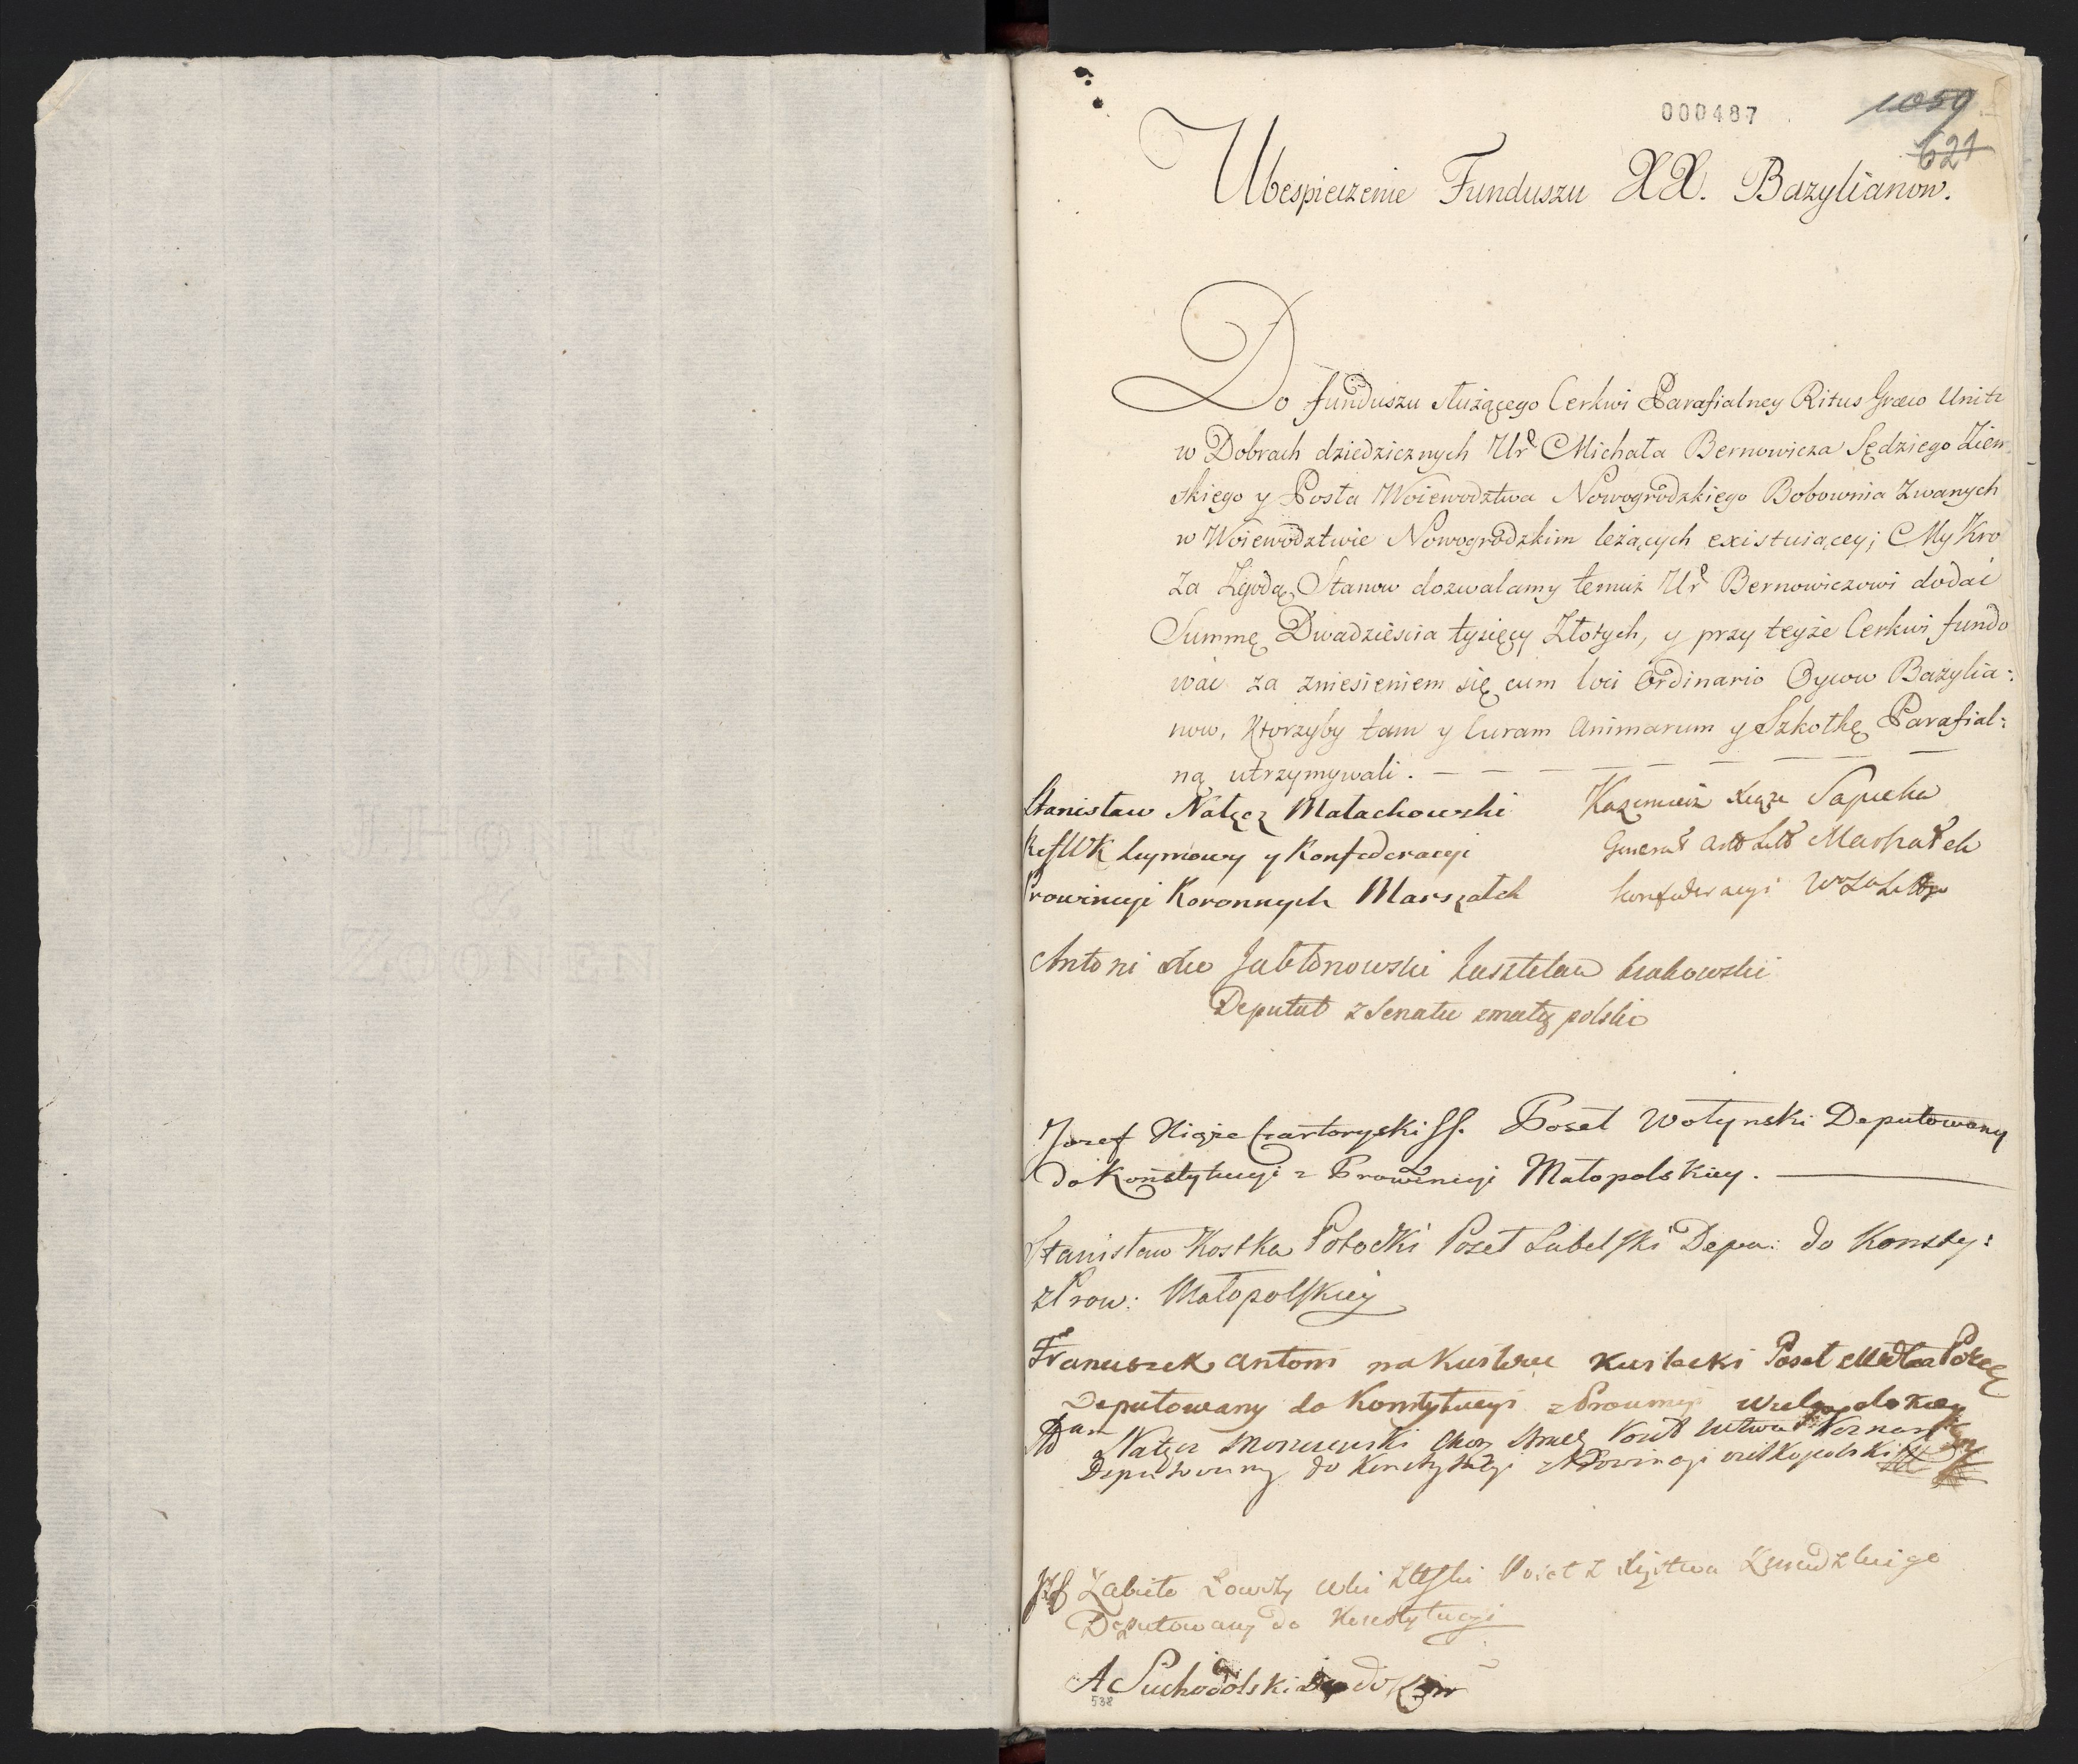 000487
1059
621
Ubespieczenie Funduszu XX. Bazylianow.
Do funduszu służącego Cerkwi Parafialney Ritus Græco Unit:
w Dobrach dziedzicznych Ur. Michała Bernowicza Sędziego Ziem
skiego y Posła Woiewodztwa Nowogrodzkiego Bobownia zwanych
w Woiewodztwie Nowogrodzkim leżących existuiącey; My Kro
Za Zgodą Stanow dozwalamy temuż Ur. Bernowiczowi dodać
Summę Dwadzieścia tysięcy Złotych, y przy teyże Cerkwi fundo
wać za zniesieniem się cum loci Ordinario Oycow Bazylia:
now, ktorzyby tam y Curam Animarum y Szkołkę Parafial:
ną utrzymywali. — — — — — — — —
Stanisław Nałęcz Małachowski
RefWK Seymowy y Konfederacyi
Prowincyi Koronnych Marszałek
Kazimierz Xiąże Sapieha
Generał Art Lit Marszałek
konfederacyi
Antoni Xże Jabłonowski kasztelan krakowski
Deputat z Senatu z małey polski
Jozef Xiąże Czartoryski Poseł Wołynski Deputowany
do Konstytucyi z Prowincyi Małopolskiey.
Stanisław Kostka Potocki Poseł Lubelski Depu: do Konsty:
z Prow: Małopolskiey
Franciszek Antoni na Kwilczu Kwilecki Poseł
Deputowany do Konstytucyi z Prowincyi Wielgopolskiey
Nałęcz Moszczenski Poseł
Deputowany do Konstytucyi z Prowincyi wielkopolski
Jzf Zabiełło Łowczy Poseł z Xięstwa Zmudzkiego
Deputowany do Konstytucyi
A Suchodolski do
538